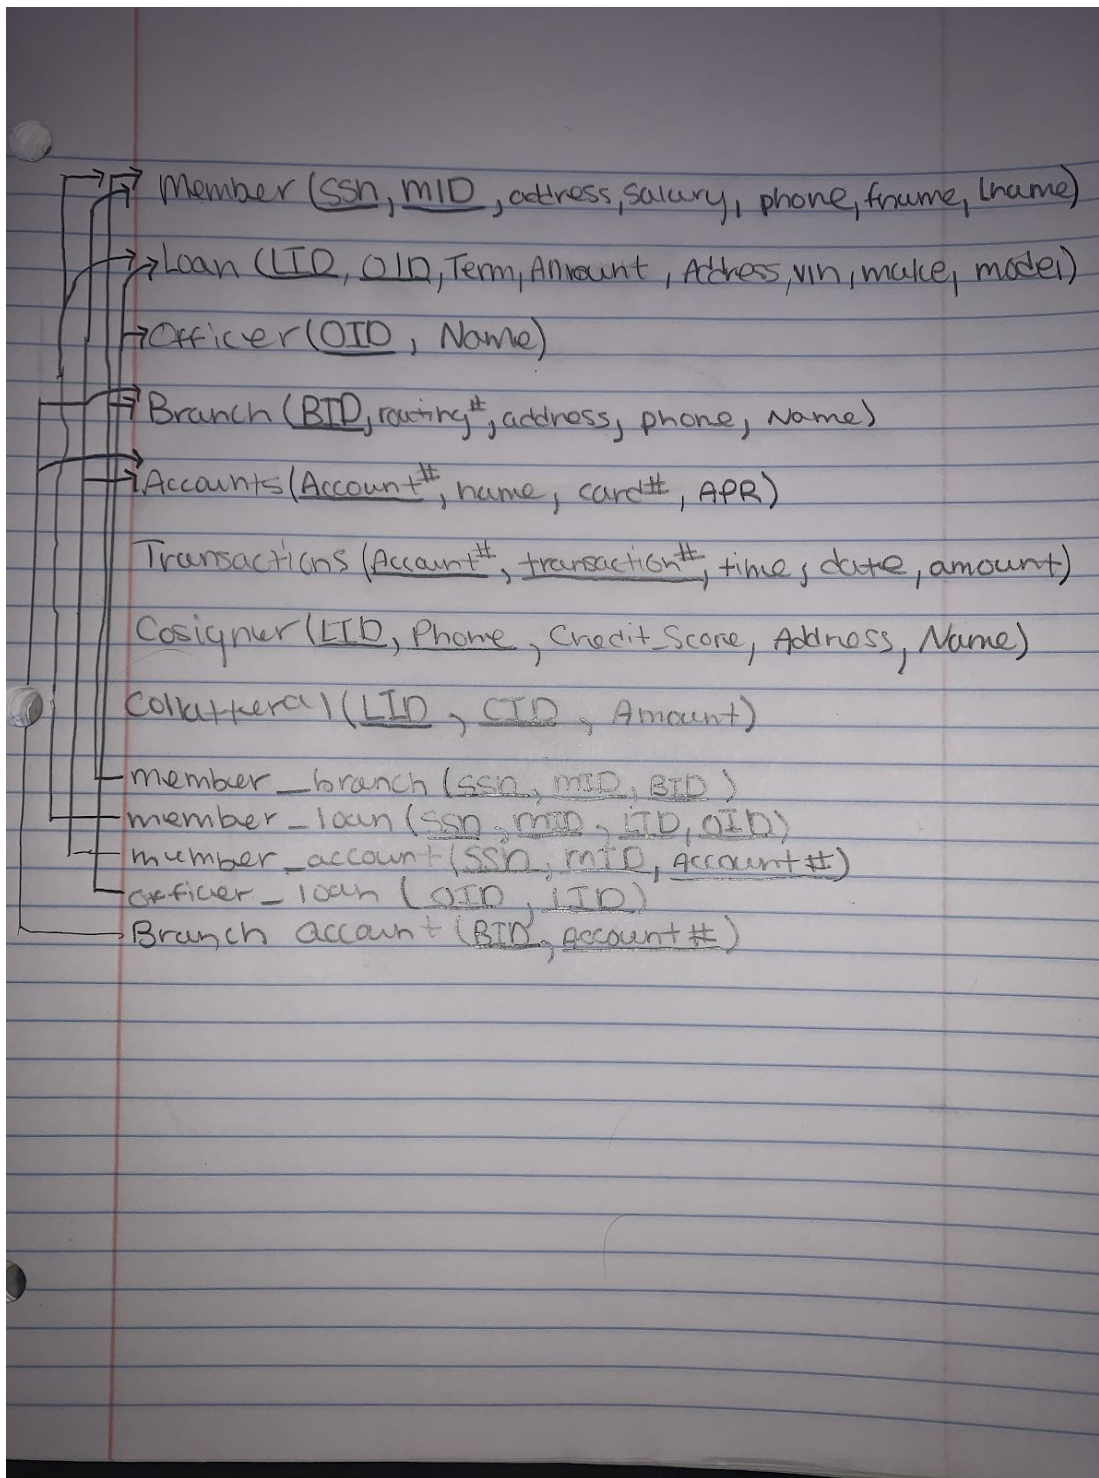 Member (ssn, mID, address, salary, phone, fname, Lname)
Loan (LID, OID, Term, Amount, Address, vin, make, model)
Officer (OID, Name)
Branch (BID, routing#, address, phone, Name)
Accounts (Account#, name, card#, APR)
Transactions (Account#, transaction#, time, date, amount)
Cosigner (LID, Phone, Credit_Score, Address, Name)
Collatteral (LID, CID, Amount)
member_branch (ssn, mID, BID)
member_loan (ssn, mID, LID, OID)
member_account (SSn, mID, Account#)
officer_loan (OID, LID)
Branch account (BID, account#)